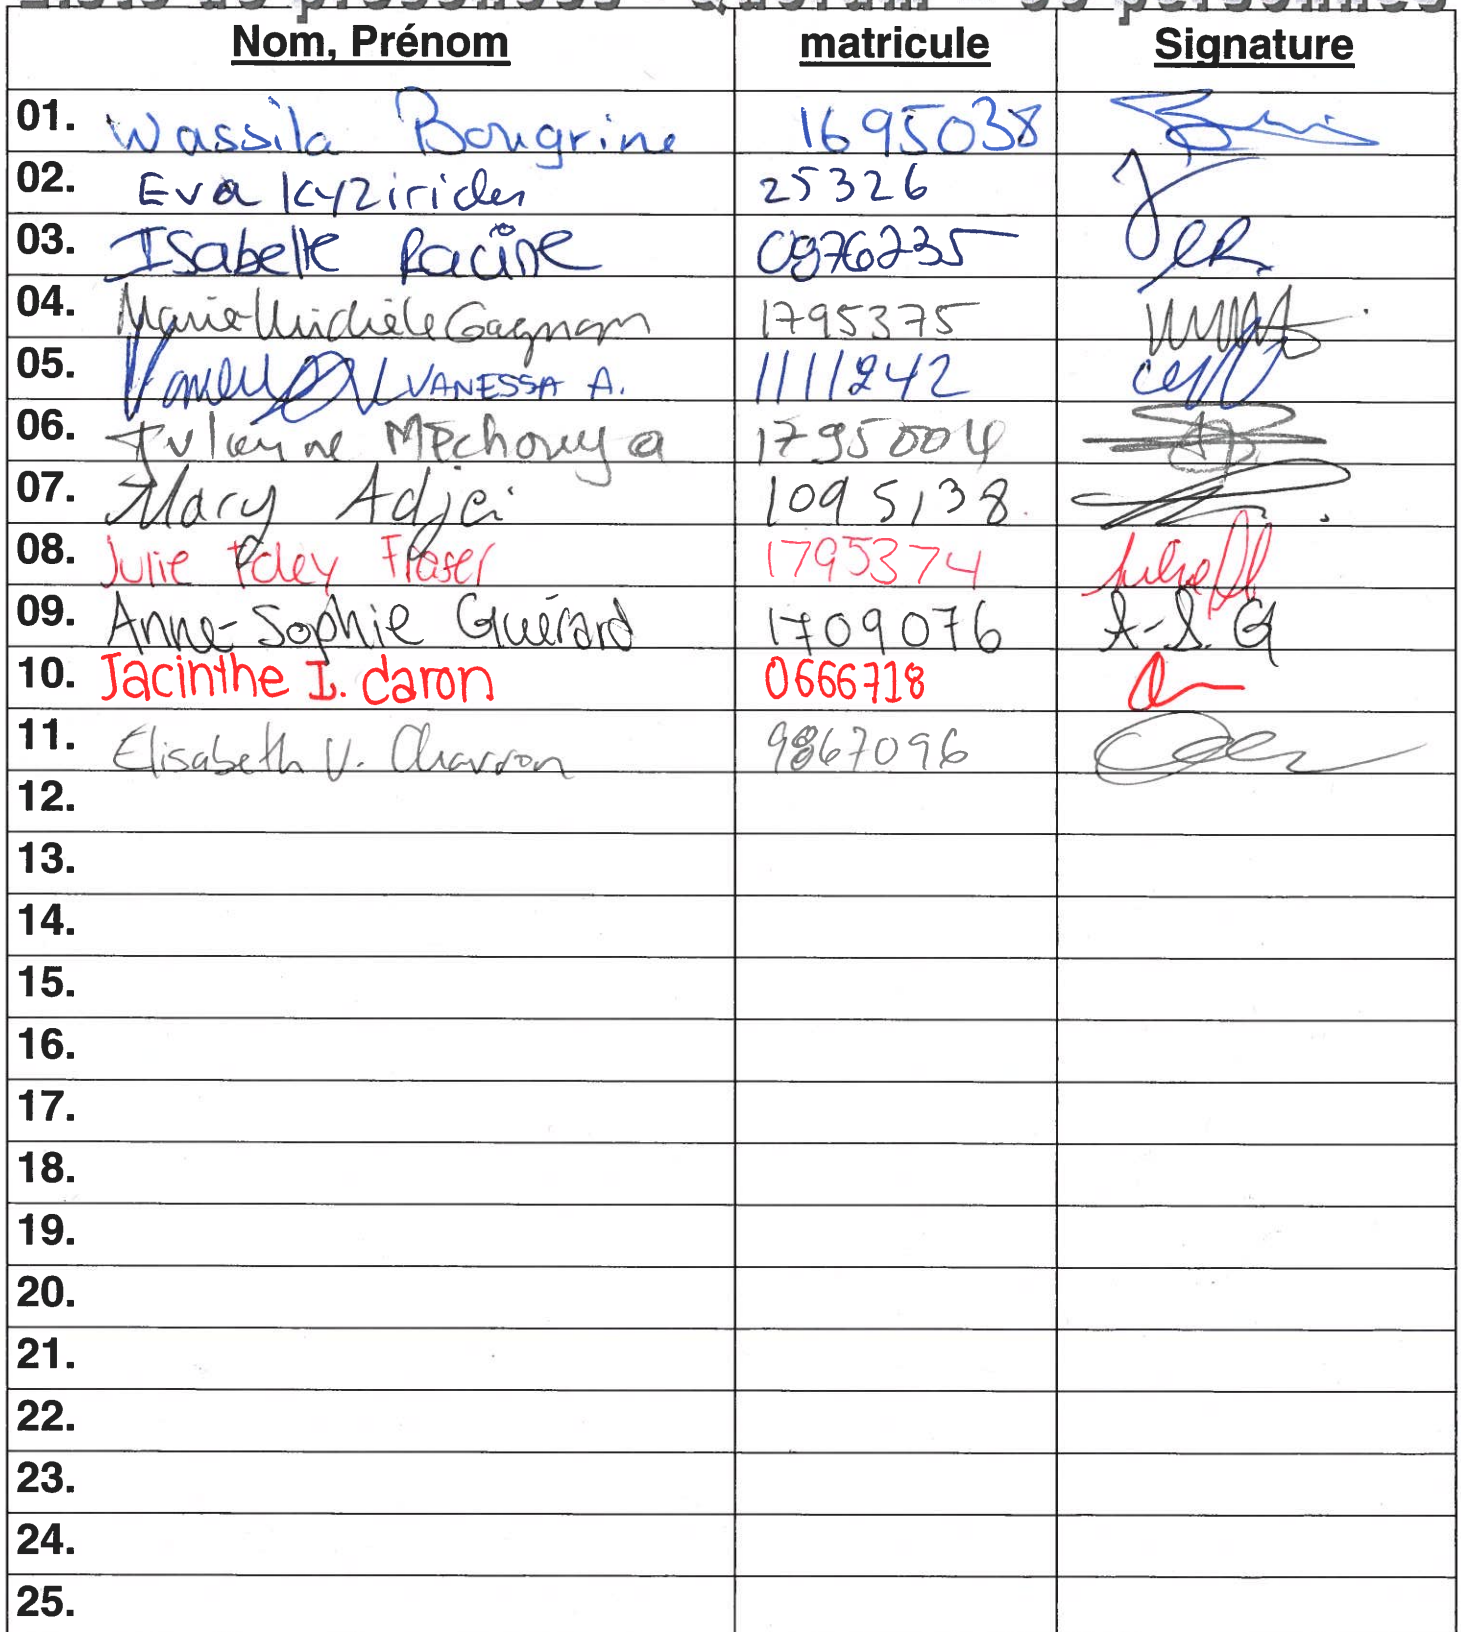 Liste de présences - Quorum = 30 personnes
Nom, Prénom matricule Signature
01. Wassila Bougrine 1695038
02. Eva Kyzirides 25326
03. Isabelle Racine 0976235 I.R.
04. Marie-Michèle Gagnon 1795375
05. VANESSA A. 1111242
06. Mechouya 1795004
07. Mary Adjei 1095138
08. Julie Foley Fraser 1795374
09. Anne-Sophie Guérard 1709076 A-S. G
10. Jacinthe I. Caron 0666718
11. Elisabeth V. Charron 9867096
12.
13.
14.
15.
16.
17.
18.
19.
20.
21.
22.
23.
24.
25.